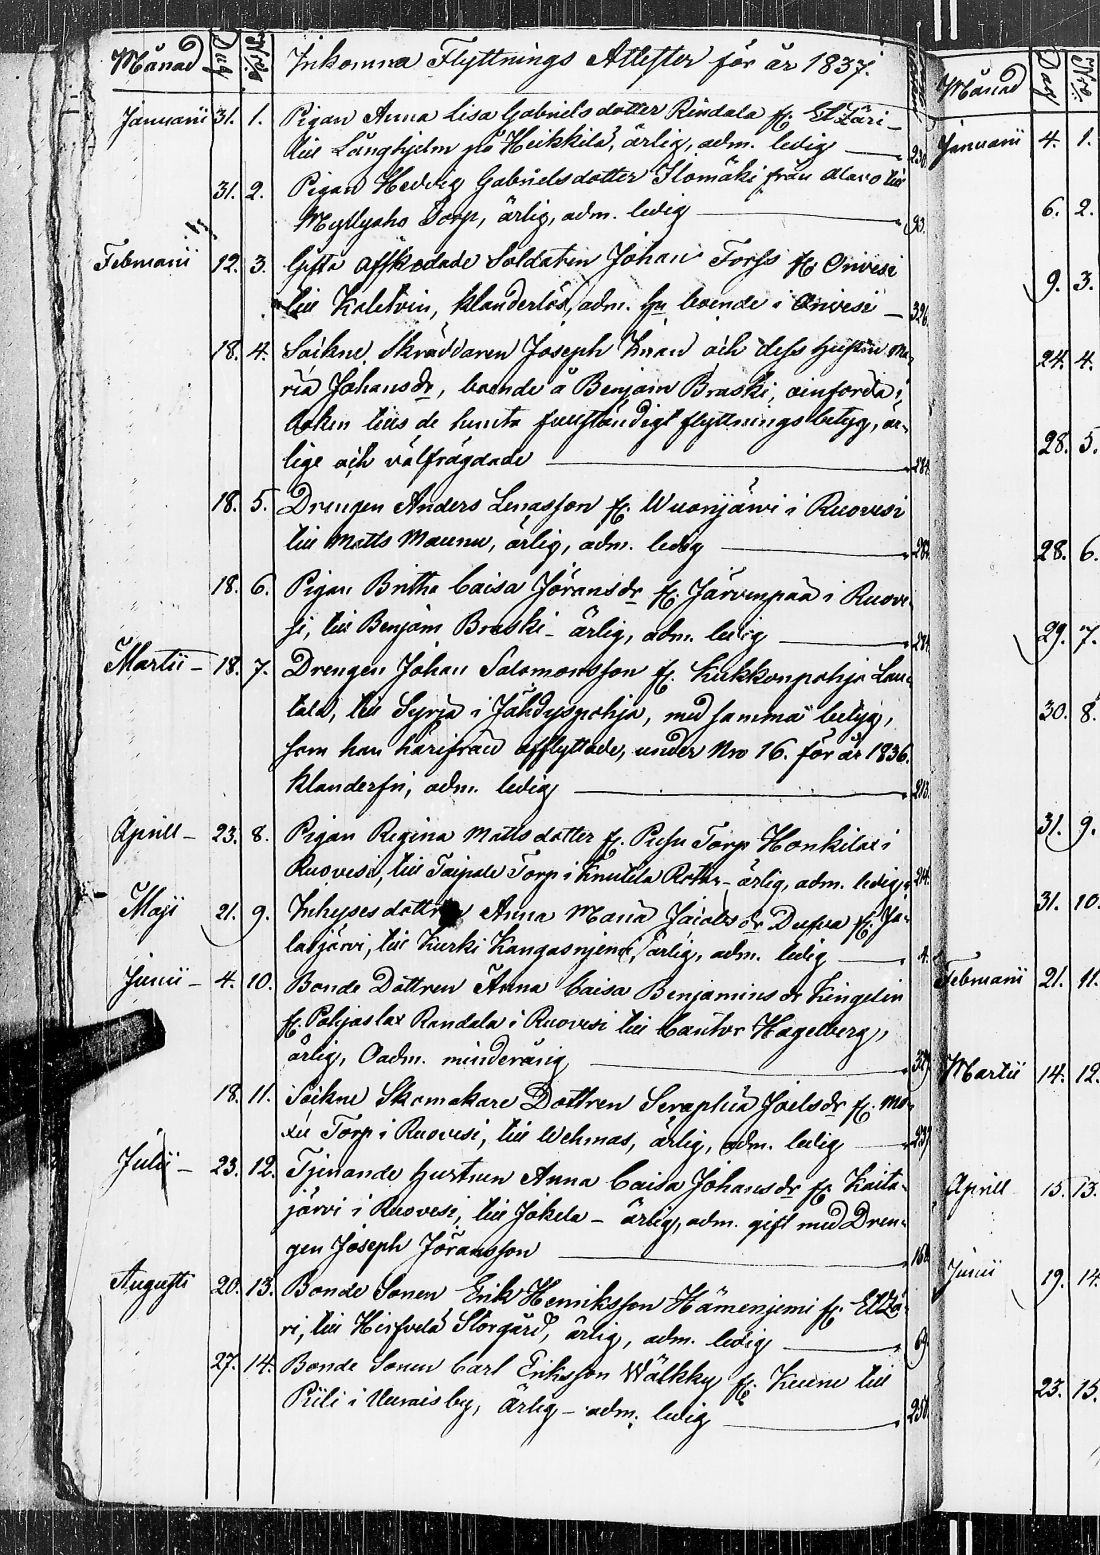 Månad Dag N:ris Inkomna Flyttnings Attester för år 1837.
Januarii 31. 1. Pigan Anna Lisa Gabrielsdotter Rindala fr. Etzäri
till Långhjelm på Heikkilä, ärlig, adm. ledig
31. 2. Pigan Hedvig Gabrielsdotter Ilomäki från Alavo till
Myllyaho Torp, ärlig, adm. ledig 93.
Februarii 12. 3. Gifta afskedade Soldaten Johan Forss fr. Orivesi
till Kaletvin, klanderlös, adm. hu boende i Orivesi 326.
18. 4. Sockne Skräddaren Joseph Knau och dess hustru Ma-
ria Johansdr, boende å Benjam Braski, införda i
boken tills de hunnit fullständigt flyttningsbetyg, är-
lige och välfrägdade 284.
18. 5. Drengen Anders Lenasson fr. Wuorijärvi i Ruovesi
till Matts Maunu, ärlig, adm. ledig 282.
18. 6. Pigan Britha Caisa Jöransdr fr. Järvenpää i Ruove-
si, till Benjam Braski - ärlig, adm. ledig 284.
Martii - 18. 7. Drengen Johan Salomonsson fr. Kukkonpohja Lau-
tala, till Syrjä i Jähdyspohja, med samma betyg,
som han härifrån afflyttade, under Nro 16. för år 1836.
klanderfri, adm. ledig 213.
Aprill - 23. 8. Pigan Regina Mattsdotter fr. Pesu Torp Honkilax i
Ruovesi, till Taipale Torp i Knutila Rotha - ärlig, adm. ledig 214.
Maji 21. 9. Inhysesdottren Anna Maria Jacobsdr Dufva fr. Ja-
lasjärvi, till Kurki Kangasniemi, ärlig, adm. ledig 4.
Junii - 4. 10. Bonde Dottren Anna Caisa Benjaminsdr Kingelin
fr. Pohjaslax Randala i Ruovesi till Cantor Hagelberg,
ärlig, Oadm. minderårig 329.
18. 11. Sockne Skomakare Dottren Seraphia Joelsdr fr. Mo-
xii Torp i Ruovesi, till Wehmas, ärlig, adm. ledig
Julii - 23. 12. Tjenande hustrun Anna Caisa Johansdr fr. Kaita-
järvi i Ruovesi, till Jokela - ärlig, adm. gift med Dren-
gen Joseph Jöransson 164.
Augusti 20. 13. Bonde Sonen Erik Henriksson Hämenjemi fr. Etzä-
ri, till Hirfvelä Storgård, ärlig, adm. ledig 69.
27. 14. Bonde Sonen Carl Eriksson Wälkky fr. Keuru till
Riili i Uuraisby, ärlig - adm. ledig 258.
Månad Dag N:ris
Januarii 4. 1.
6. 2.
9. 3.
24. 4.
28. 5.
28. 6.
29. 7.
30. 8.
31. 9.
31. 10.
Februarii 21. 11.
Martii 14. 12.
Aprill 15. 13.
Junii 19. 14.
23. 15.